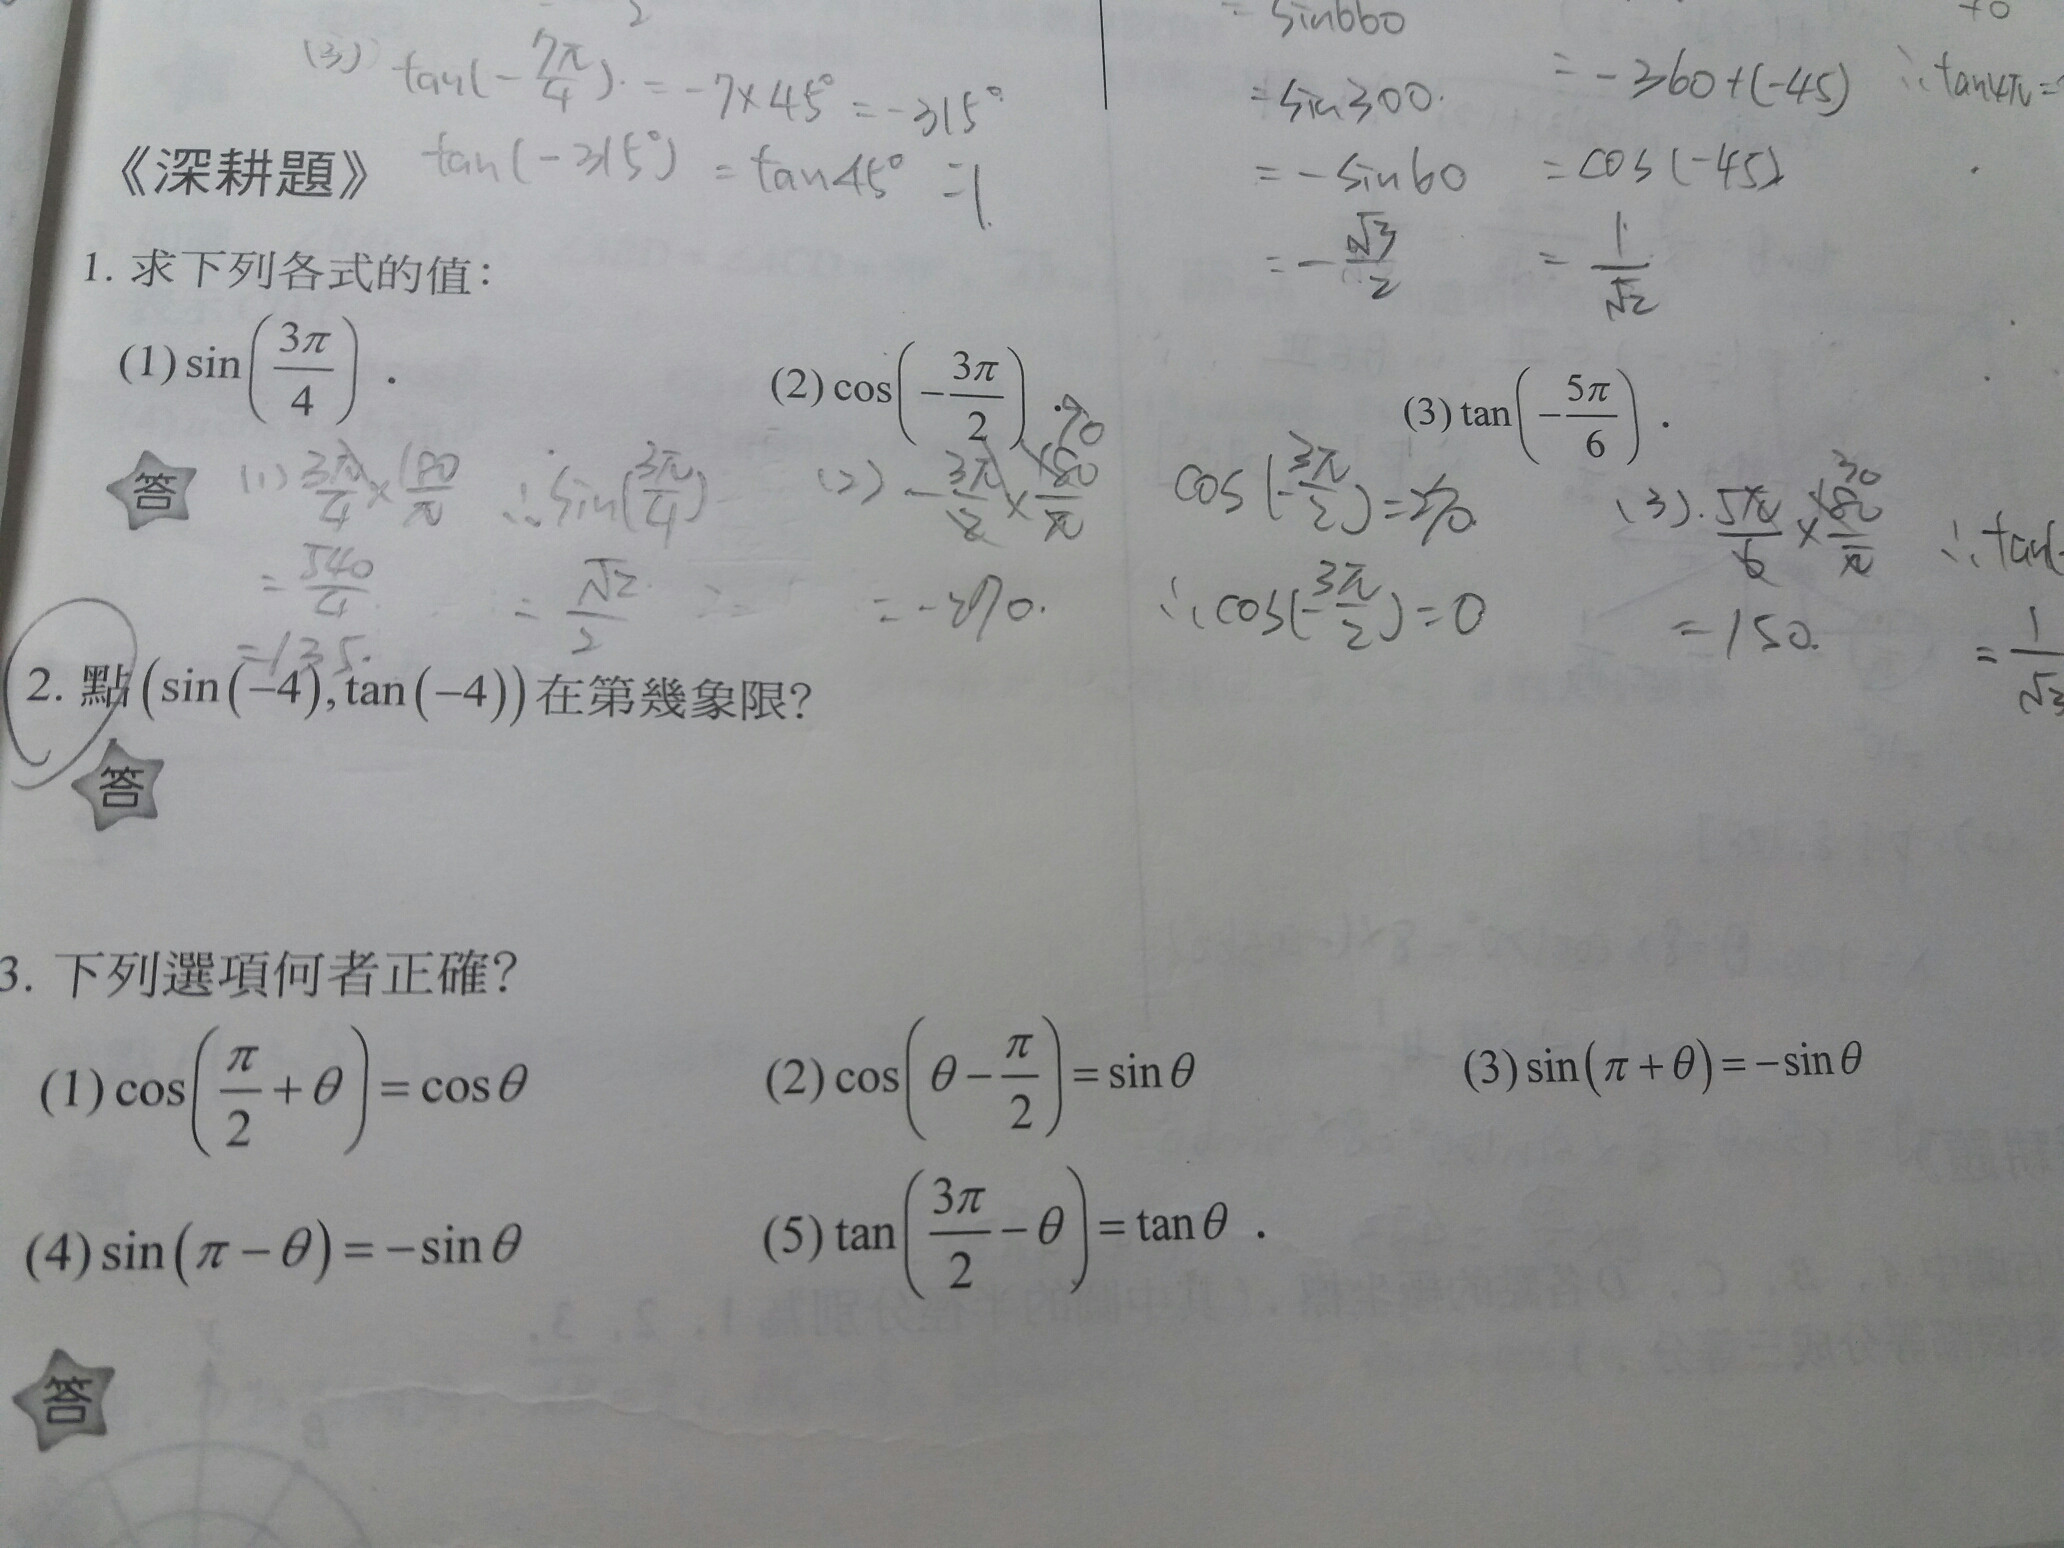 2
(3) tan(-7π/4). = -7×45° = -315°
tan(-315°) = tan45° =1
= sin660
=sin300.
= -sin60
= -√3/2
= -360+(-45)
=cos(-45)
= 1/√2
∴tan4π=
《深耕題》
1. 求下列各式的值:
(1) sin(3π/4) .
(2) cos(-3π/2) .
(3) tan(-5π/6) .
答
(1) 3π/4 × 180/π
= 540/4
=135.
∴sin(3π/4)
= √2/2
(2) -3π/2 × 180/π 90
= -270.
cos(-3π/2)=270
∴cos(-3π/2)=0
(3). 5π/6 × 180/π 30
=150.
∴tan(-
= 1/√3
2. 點(sin(-4),tan(-4))在第幾象限?
答
3. 下列選項何者正確?
(1) cos(π/2+θ)=cosθ
(2) cos(θ-π/2)=sinθ
(3) sin(π+θ)=-sinθ
(4) sin(π-θ)=-sinθ
(5) tan(3π/2-θ)=tanθ .
答